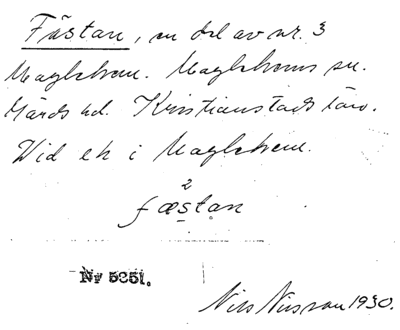 Fästan, en del av nr. 3
Maglehem. Maglehems sn.
Gärds hd. Kristianstads län.
Vid ek i Maglehem.
2
fæstan
Ny 5251.
Nils Nilsson 1930.